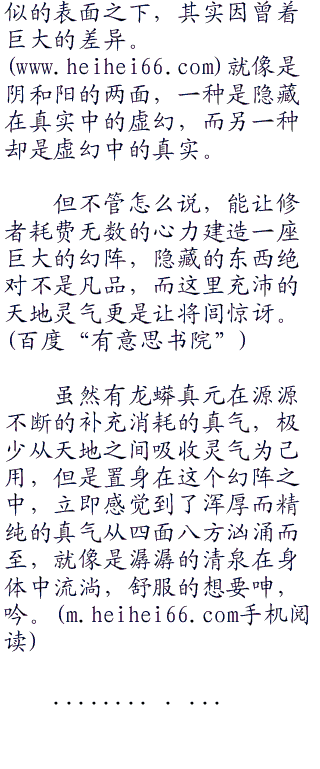 似的表面之下，其实因曾着
巨大的差异。
(www.heihei66.com)就像是
阴和阳的两面，一种是隐藏
在真实中的虚幻，而另一种
却是虚幻中的真实。
但不管怎么说，能让修
者耗费无数的心力建造一座
巨大的幻阵，隐藏的东西绝
对不是凡品，而这里充沛的
天地灵气更是让将闾惊讶。
(百度“有意思书院”)
虽然有龙蟒真元在源源
不断的补充消耗的真气，极
少从天地之间吸收灵气为己
用，但是置身在这个幻阵之
中，立即感觉到了浑厚而精
纯的真气从四面八方汹涌而
至，就像是潺潺的清泉在身
体中流淌，舒服的想要呻，
吟。(m.heihei66.com手机阅
读)
........ . ...